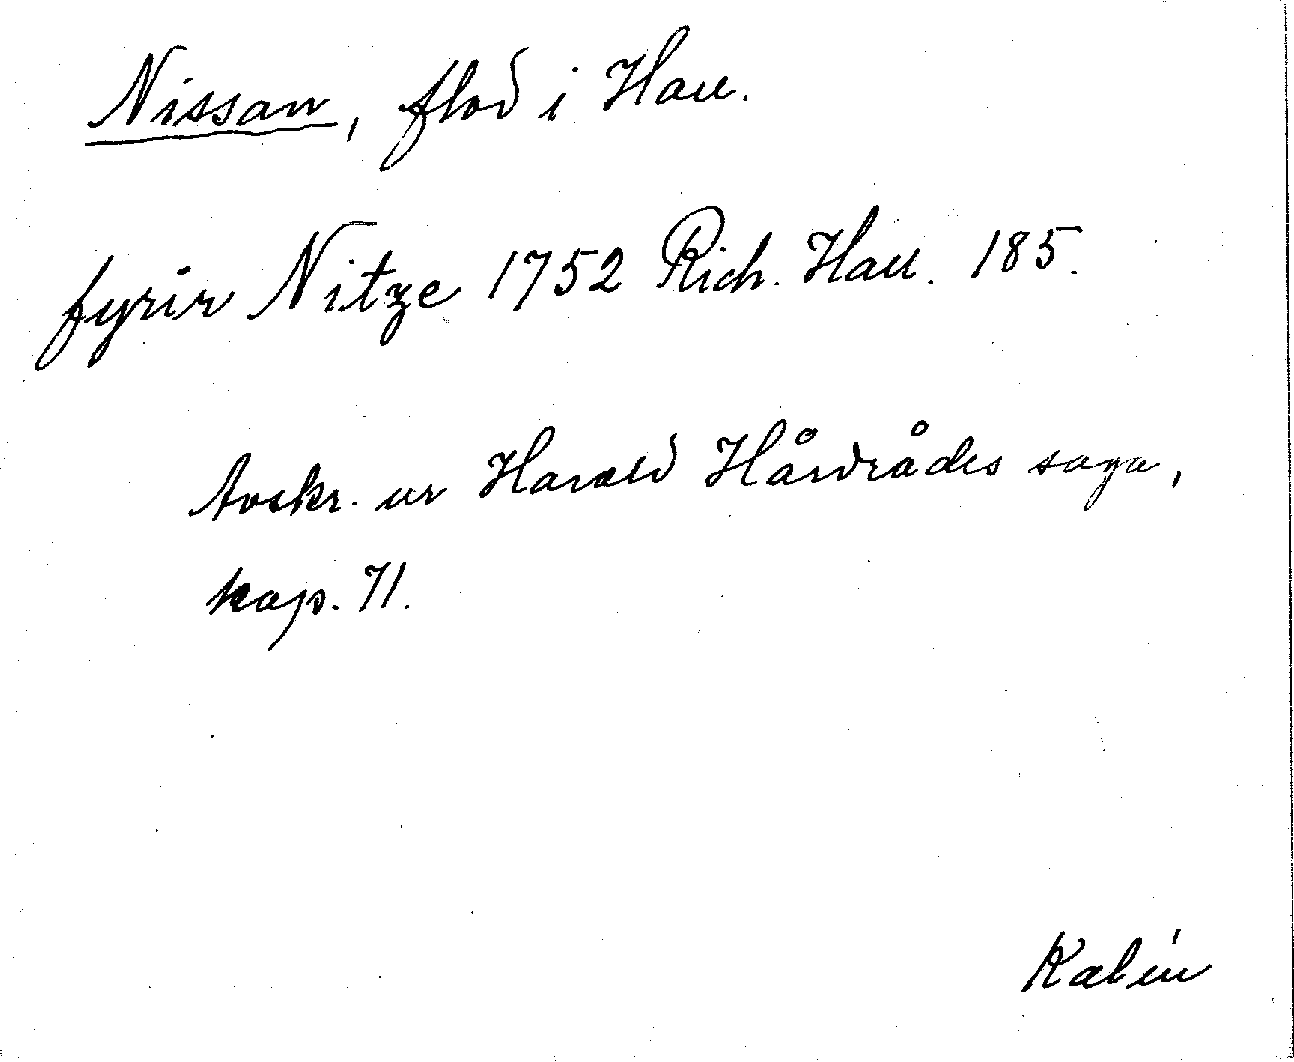 Nissan, flod i Hall.
fyrir Nitze 1752 Rich. Hall. 185.
Avskr. ur Harald Hårdrådes saga,
kap. 71.
Kalén